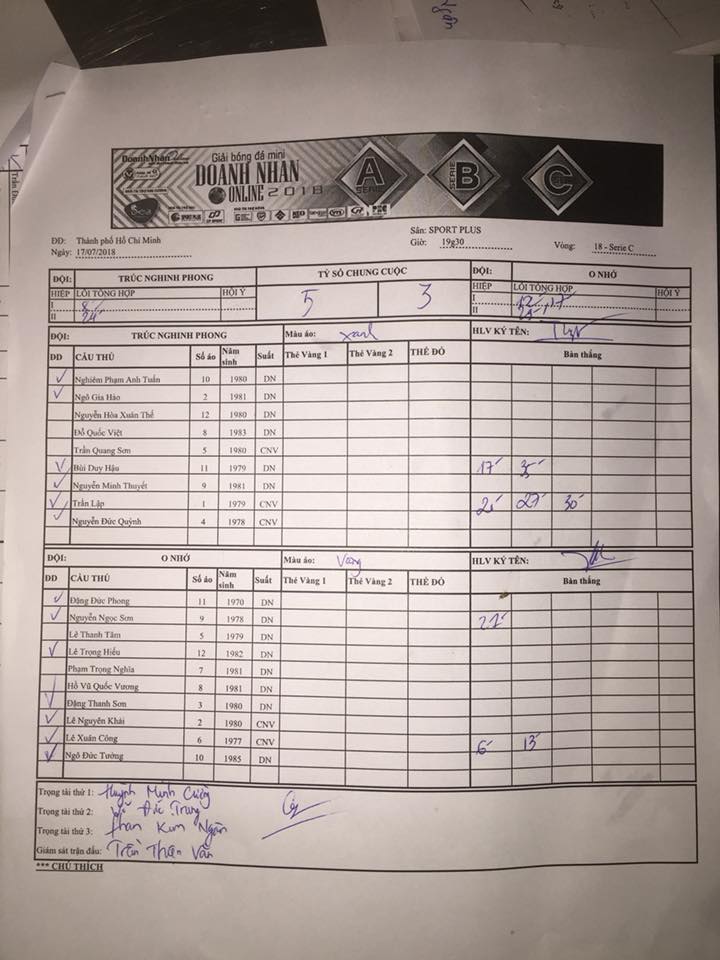 DoanhNhân
Giải bóng đá mini
DOANH NHÂN
ONLINE 2018
A SERIE
SERIE B
C
Sea
Sân: SPORT PLUS
ĐĐ: Thành phố Hồ Chí Minh
Giờ: 19g30
Vòng: 18 - Serie C
Ngày: 17/07/2018
ĐỘI: TRÚC NGHINH PHONG TỶ SỐ CHUNG CUỘC ĐỘI: O NHỚ
HIỆP LỖI TỔNG HỢP HỘI Ý 5 3 HIỆP LỖI TỔNG HỢP HỘI Ý
I 8' I 12', 17'
II 24' II 25'
ĐỘI: TRÚC NGHINH PHONG Màu áo: xanh HLV KÝ TÊN:
ĐD CẦU THỦ Số áo Năm sinh Suất Thẻ Vàng 1 Thẻ Vàng 2 THẺ ĐỎ Bàn thắng
Nghiêm Phạm Anh Tuấn 10 1980 DN
Ngô Gia Hào 2 1981 DN
Nguyễn Hòa Xuân Thế 12 1980 DN
Đỗ Quốc Việt 8 1983 DN
Trần Quang Sơn 5 1980 CNV
Bùi Duy Hậu 11 1979 DN 17' 35'
Nguyễn Minh Thuyết 9 1981 DN
Trần Lập 1 1979 CNV 25' 27' 30'
Nguyễn Đức Quỳnh 4 1978 CNV
ĐỘI: O NHỚ Màu áo: Vàng HLV KÝ TÊN:
ĐD CẦU THỦ Số áo Năm sinh Suất Thẻ Vàng 1 Thẻ Vàng 2 THẺ ĐỎ Bàn thắng
Đặng Đức Phong 11 1970 DN
Nguyễn Ngọc Sơn 9 1978 DN 21'
Lê Thanh Tâm 5 1979 DN
Lê Trọng Hiếu 12 1982 DN
Phạm Trọng Nghĩa 7 1981 DN
Hồ Vũ Quốc Vương 8 1981 DN
Đặng Thanh Sơn 3 1980 DN
Lê Nguyên Khải 2 1980 CNV
Lê Xuân Công 6 1977 CNV 6' 13'
Ngô Đức Tưởng 10 1985 DN
Trọng tài thứ 1: Huỳnh Minh Cường
Trọng tài thứ 2: Đức Trung
Trọng tài thứ 3: Phan Kim Ngân
Giám sát trận đấu: Trần Văn
*** CHÚ THÍCH